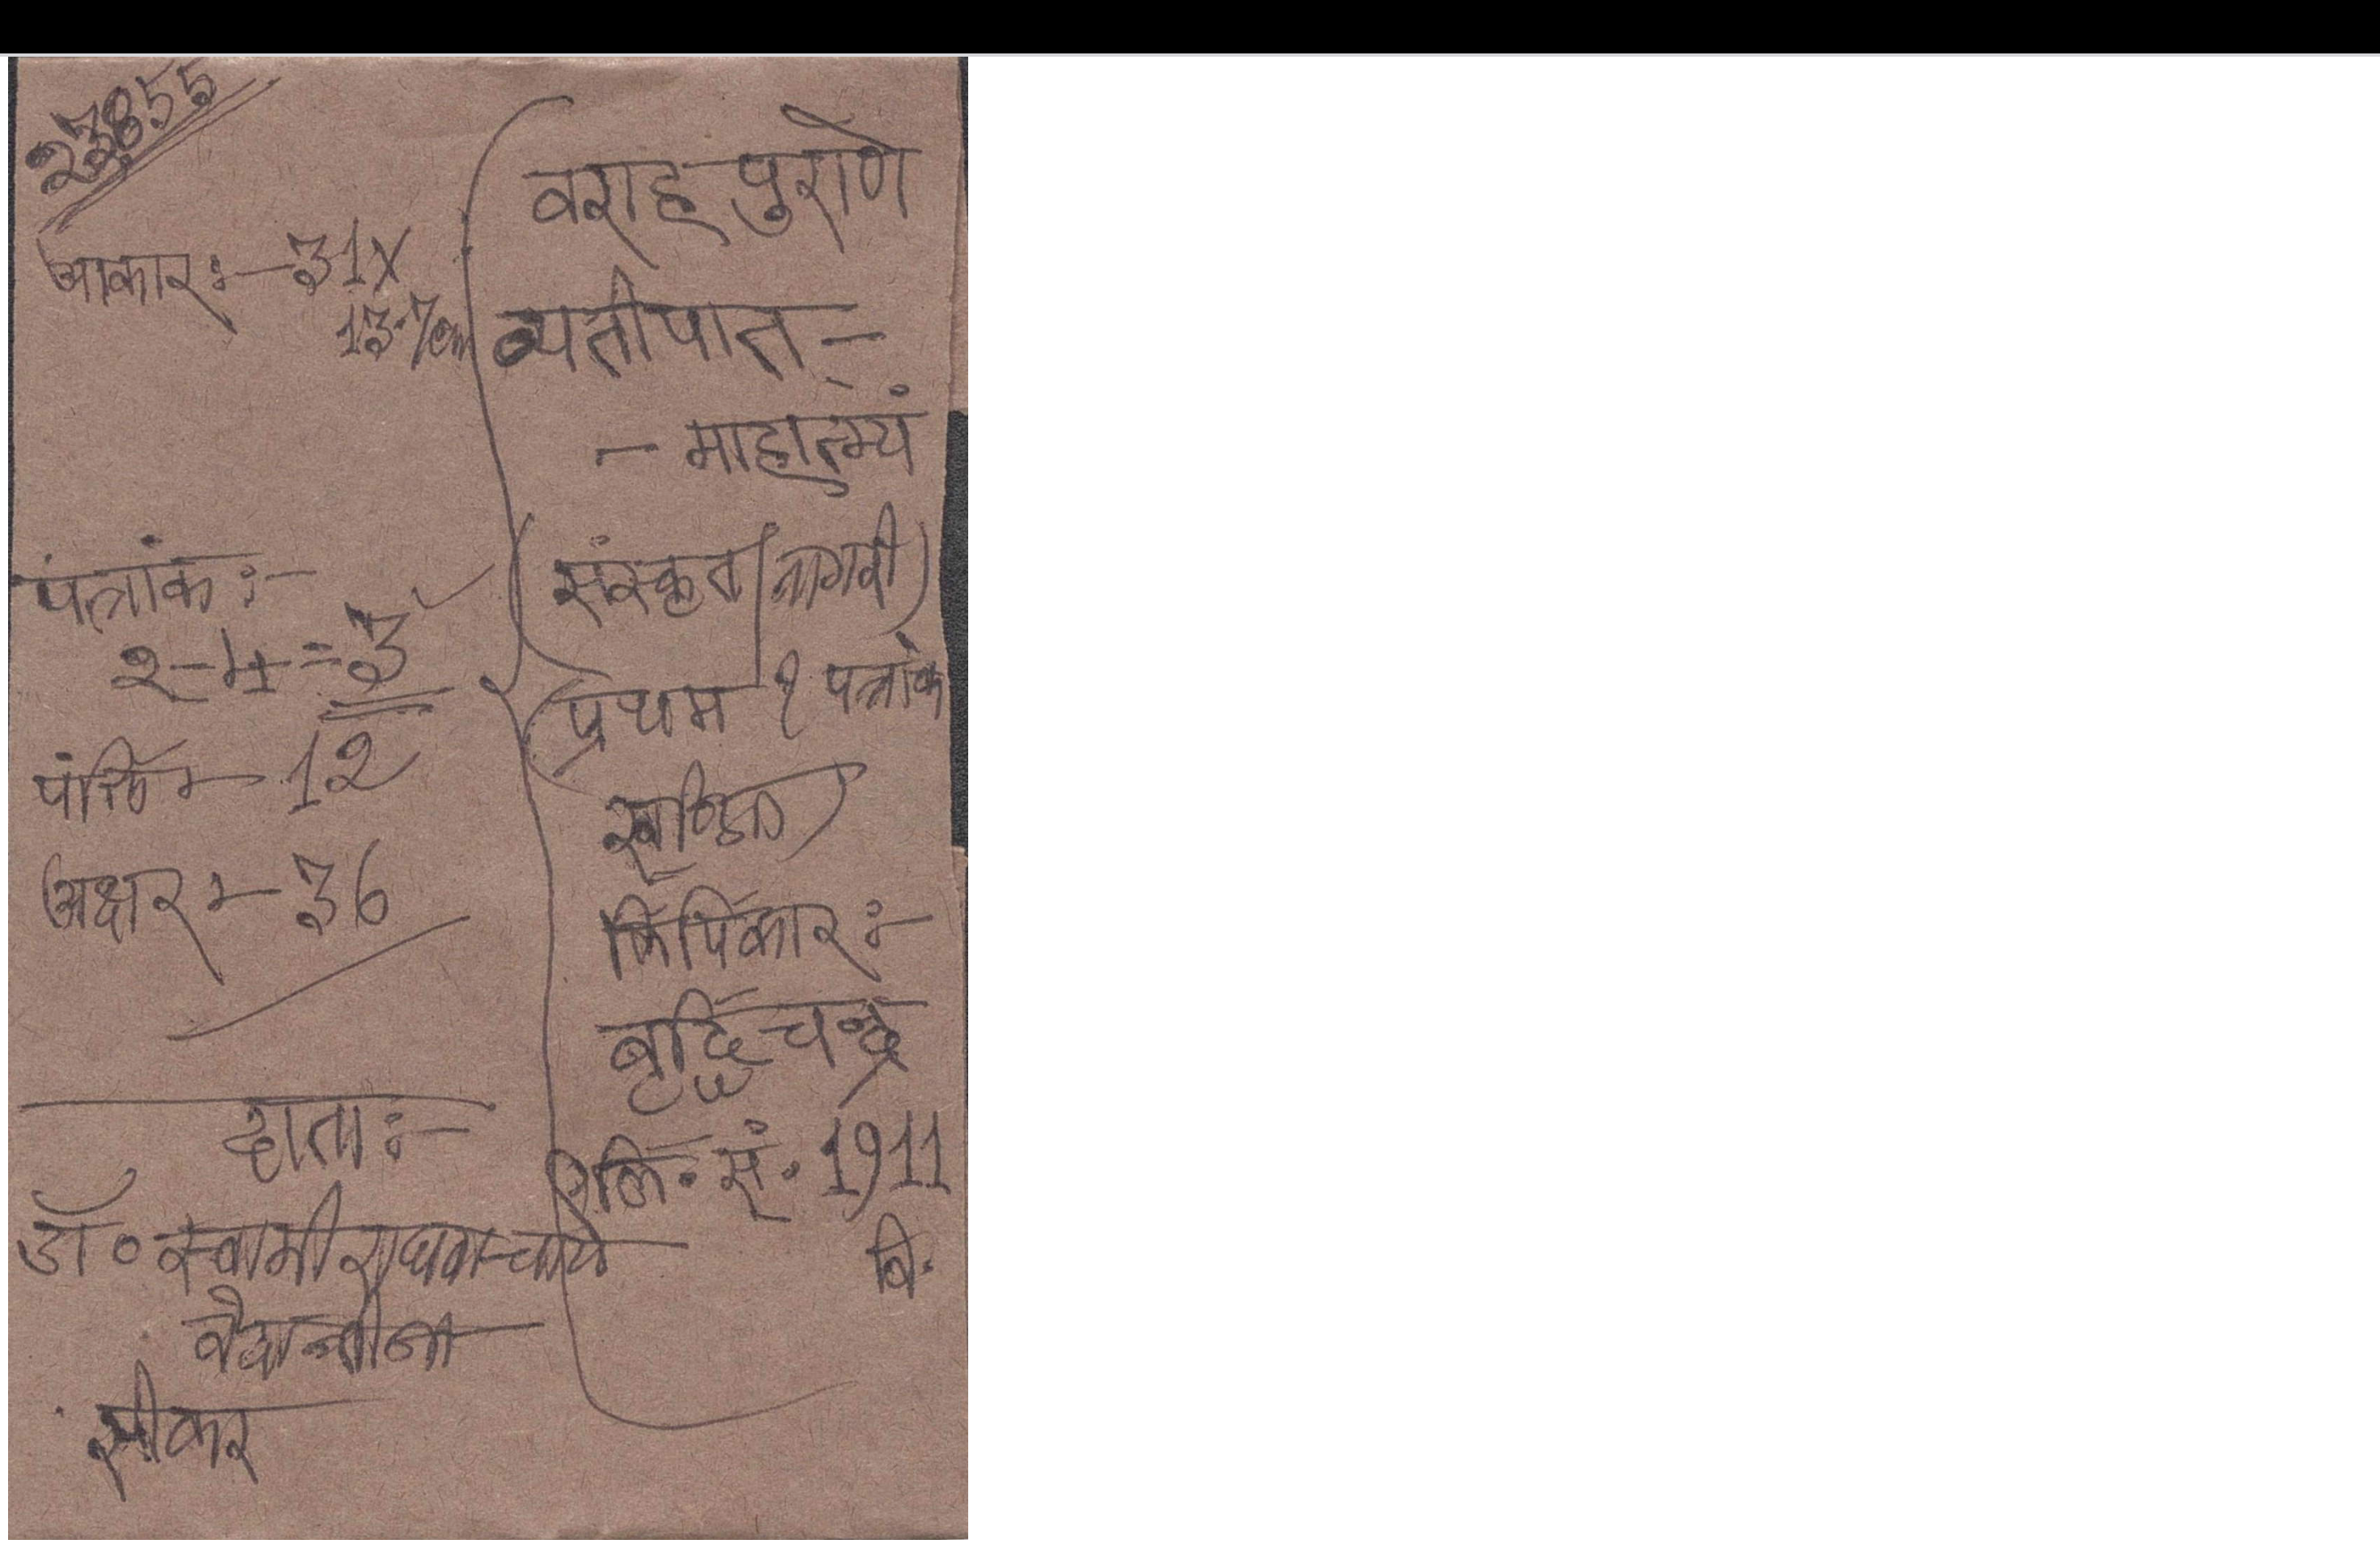 23855
आकार:- 31X
13.7cm
पत्रांक:-
2-4=3
पंक्ति - 12
अक्षर - 36
दाता:-
डॉ० स्वामी राघवाचार्य
वेदान्ती जी
सीकर
वराह पुराणे
व्यतीपात -
- माहात्म्यं
(संस्कृत/नागरी)
(प्रथम १ पत्रांक
खण्डित)
लिपिकार:-
बृद्धिचन्द्र
लि. सं. 1911
वि.